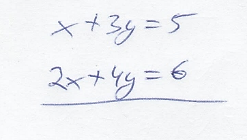 x+3y=5
2x+4y=6